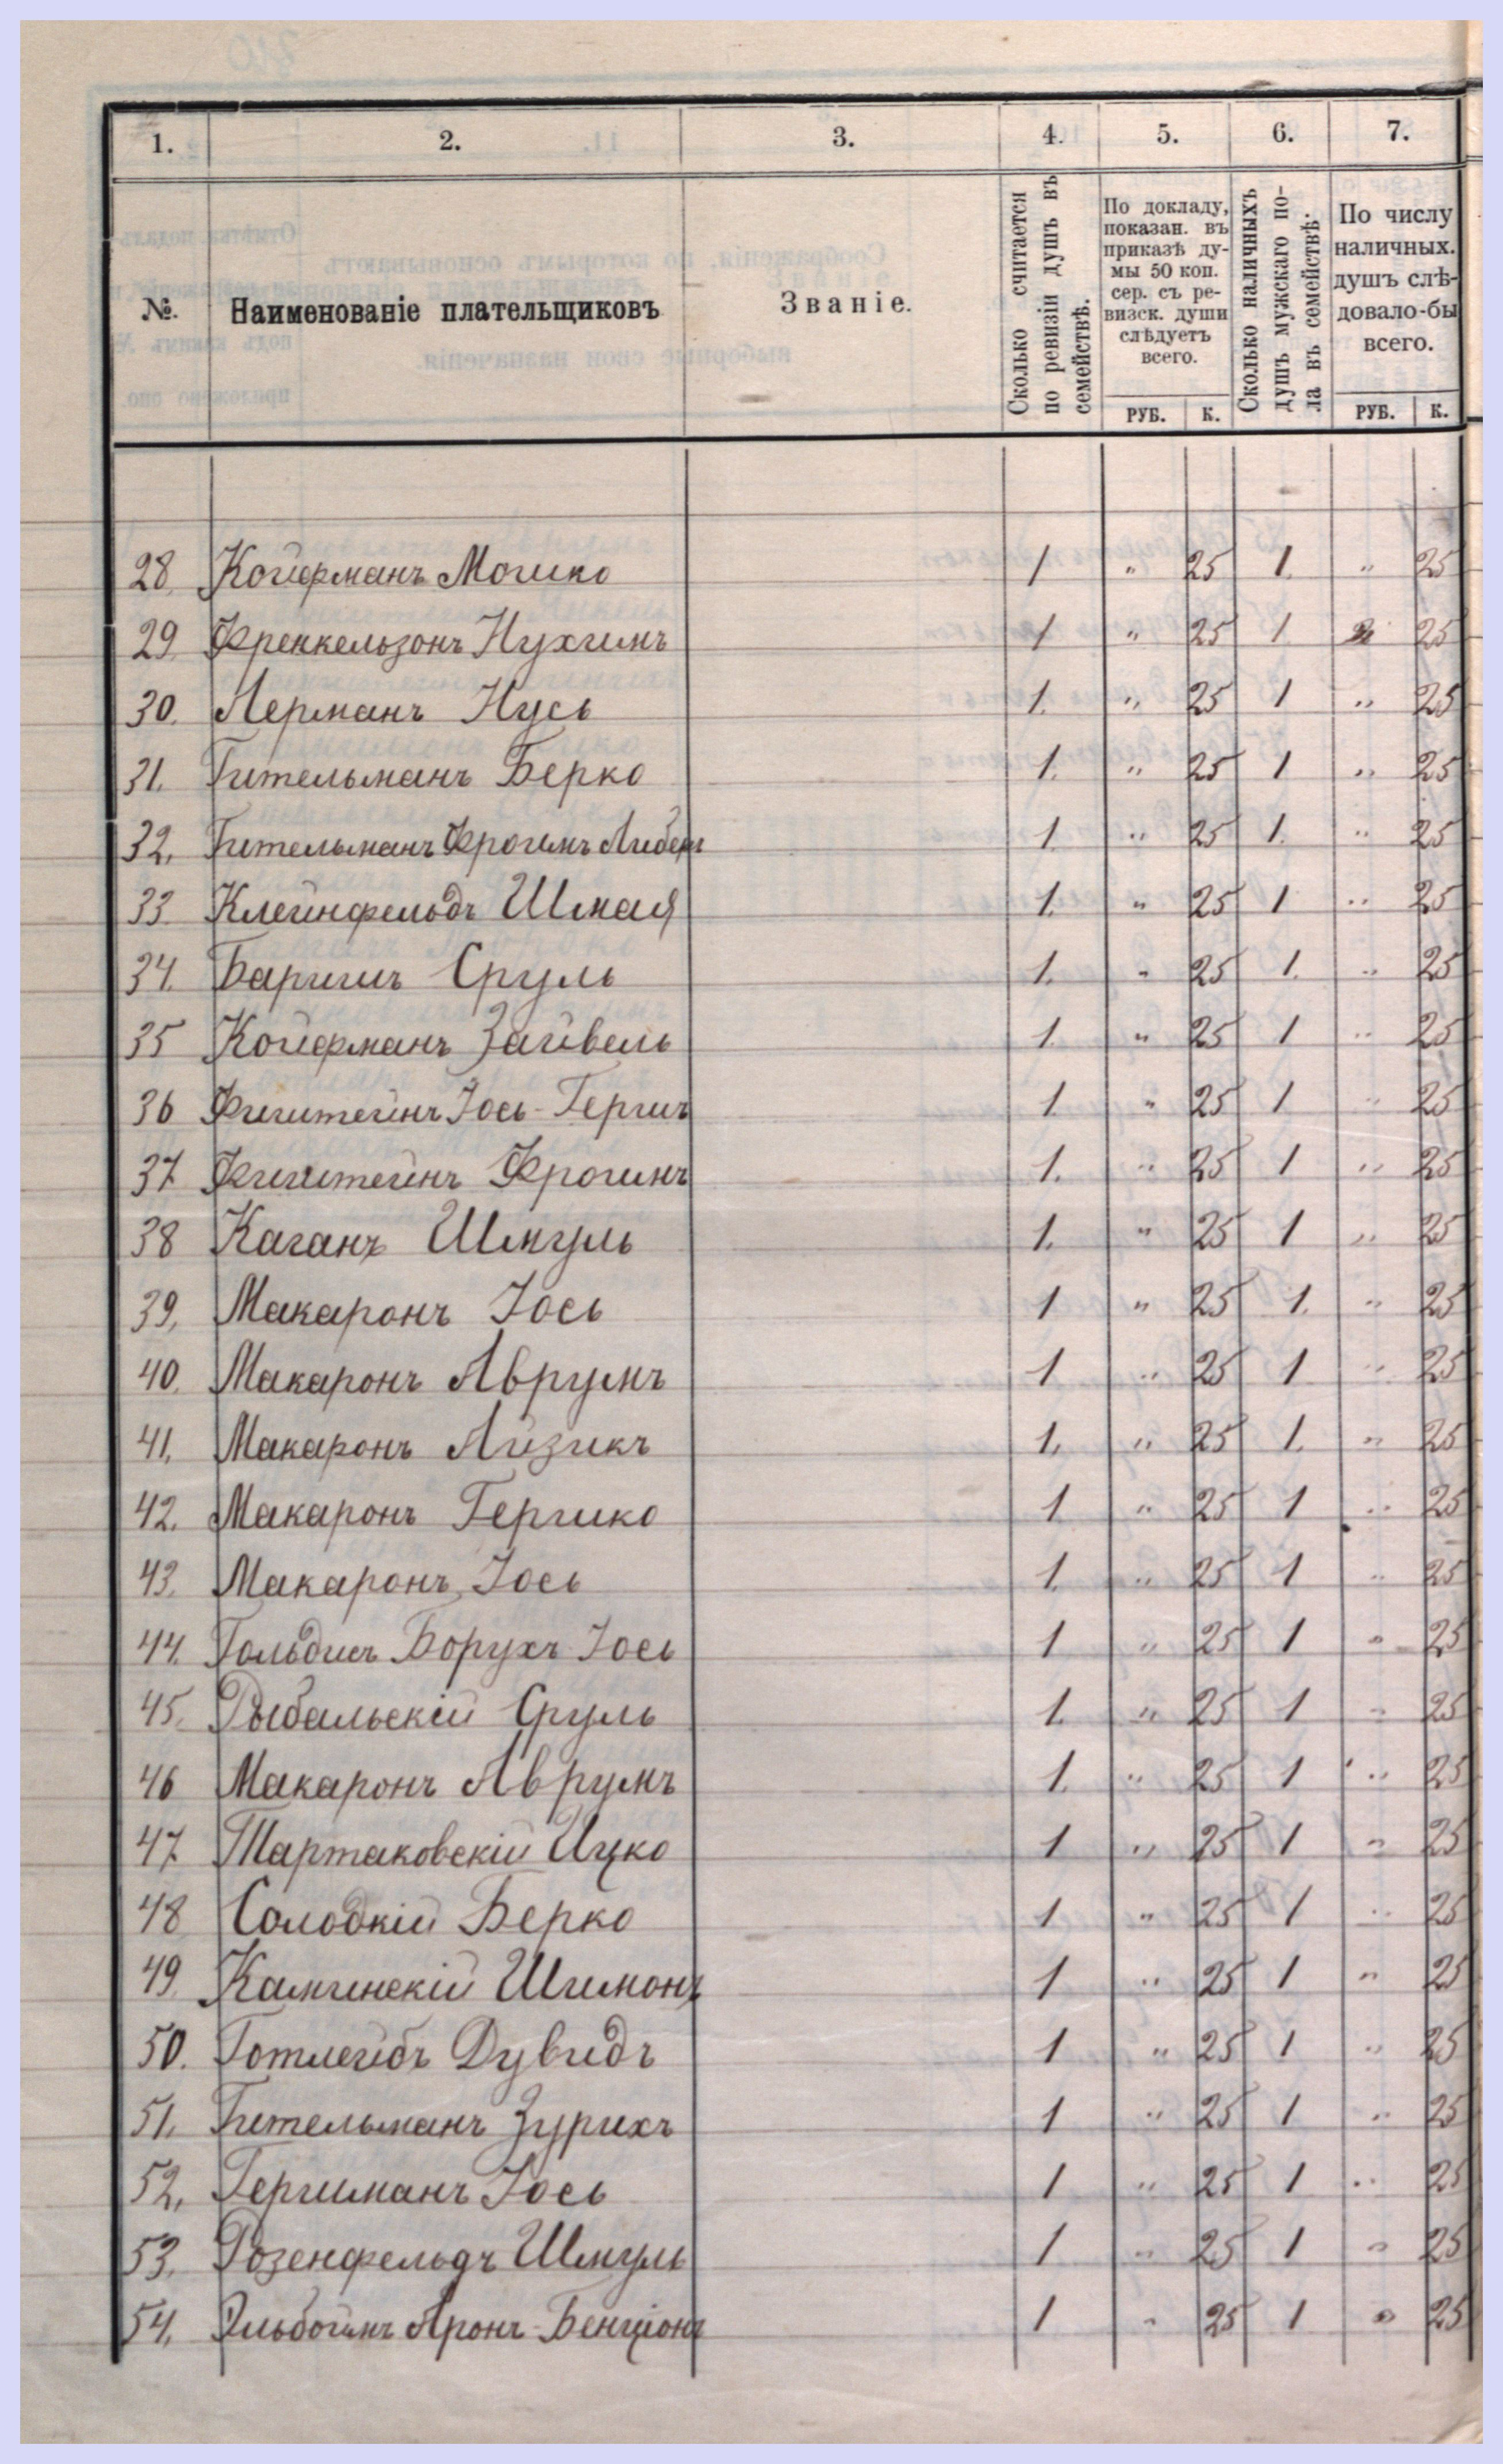 1. 2. 3. 4. 5. 6. 7.
№. Наименованіе плательщиковъ Званіе. Сколько считается по ревизіи душъ въ семействѣ. По докладу, показан. въ приказѣ ду- мы 50 коп. сер. съ ре- визск. души слѣдуетъ всего. Сколько наличныхъ душъ мужскаго по- ла въ семействѣ. По числу наличных. душъ слѣ- довало-бы всего.
РУБ. К. РУБ. К.
28 Койфманъ Мошко 1 " 25 1. " 25
29 Френкельзонъ Нухимъ 1 " 25 1 25
30. Лерманъ Нусь 1. " 25 1 " 25
31. Гительманъ Берко 1. " 25 1 " 25
32. Гительманъ Фроимъ 1. " 25 1. " 25
33. Клейнфельдъ Шмая 1. " 25 1 " 25
34. Баришъ Сруль 1. " 25 1. " 25
35 Койфманъ Зайвель 1. " 25 1 " 25
36 Фиштейнъ Іось-Гершъ 1. " 25 1 " 25
37 Фиштейнъ Фроимъ 1. " 25 1 " 25
38 Каганъ Шмуль 1. " 25 1 " 25
39, Макаронъ Іось 1 " 25 1. " 25
40. Макаронъ Аврумъ 1 " 25 1 " 25
41, Макаронъ Айзикъ 1. " 25 1. " 25
42. Макаронъ Гершко 1 " 25 1 " 25
43. Макаронъ Іось 1. " 25 1 " 25
44. Гольдисъ Борухъ Іось 1 " 25 1 " 25
45. Рыбальскій Сруль 1. " 25 1 " 25
46 Макаронъ Аврумъ 1. " 25 1 " 25
47 Тартаковскій Ицко 1 " 25 1 " 25
48 Солодкій Берко 1 " 25 1 " 25
49 Каминскій Шимонъ 1 " 25 1 " 25
50. Готлейбъ Дувидъ 1 " 25 1 " 25
51. Гительманъ Зурихъ 1 " 25 1 " 25
52, Гершманъ Іось 1 " 25 1 " 25
53. Розенфельдъ Шмуль 1 " 25 1 " 25
54. Эльбоимъ Аронъ-Бенціонъ 1 " 25 1 " 25